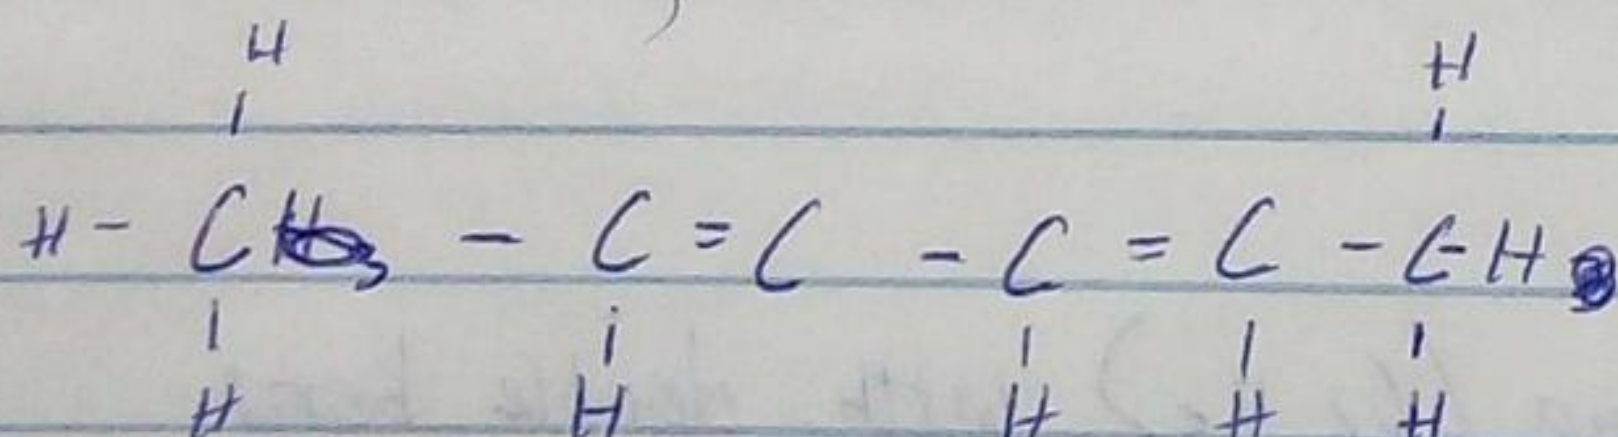 H H
H - C - C = C - C = C - C - H
H H H H H